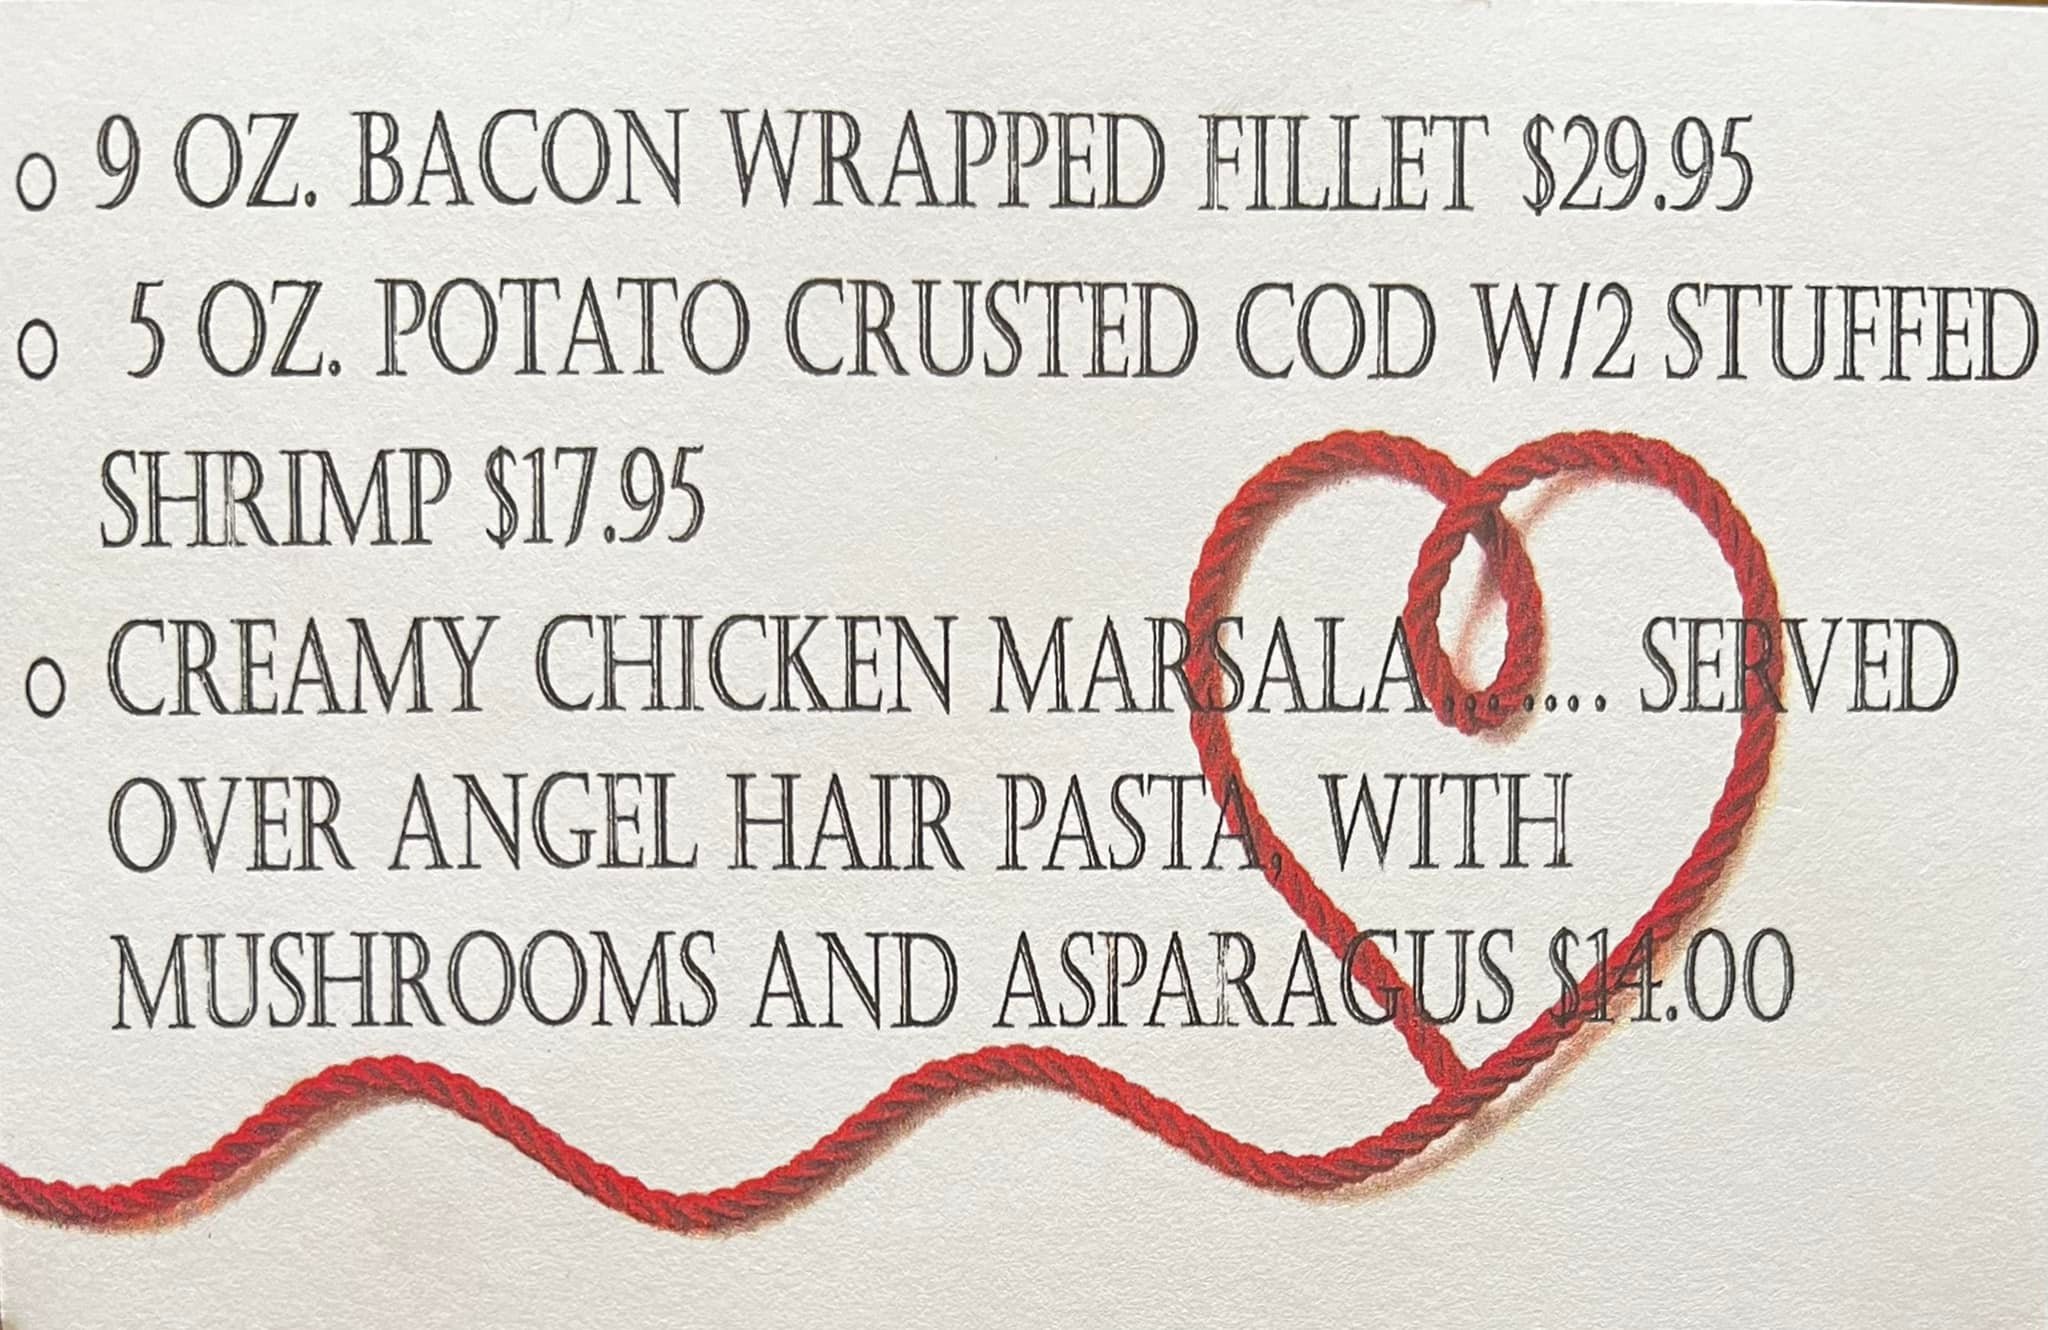 o 9 OZ. BACON WRAPPED FILLET $29.95
o 5 OZ. POTATO CRUSTED COD W/2 STUFFED
SHRIMP $17.95
o CREAMY CHICKEN MARSALA....... SERVED
OVER ANGEL HAIR PASTA, WITH
MUSHROOMS AND ASPARAGUS $14.00